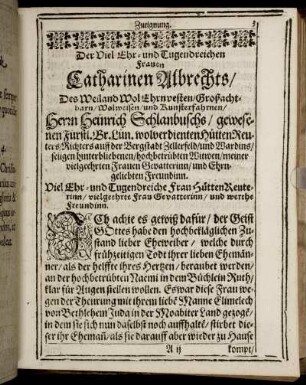 Zueignung. 3
Der Viel Ehr- und Tugendreichen
Frauen
Catharinen Albrechts/
Des Weiland Wol Ehrnvesten/Großacht-
barn/Wolweisen/und Kunsterfahrnen/
Herrn Heinrich Schlanbuschs/ gewese-
nen Fürstl. Br. Lün. wolverdienten Hütten Reu-
ters Richters auff der Bergstadt Zellerfeld/und Wardins/
seligen hinterbliebenen/hochbetrübten Witwen/meiner
vielgeehrten Frauen Gevatterinn/ und Ehrn-
geliebten Freundinn.
Viel Ehr- und Tugendreiche Frau Hütten Reute-
rinn/ vielgeehrte Frau Gevatterinn/ und werthe
Freundinn.
Ich achte es gewiß dafür/ der Geist
Gottes habe den hochbekläglichen Zu-
stand lieber Eheweiber/ welche durch
frühzeitigen Todt ihrer lieben Ehemän-
ner/als der helffte ihres Hertzen/ beraubet werden/
an der hochbetrübten Naemi in dem Büchlein Ruth/
klar für Augen stellen wollen. Es war diese Frau we-
gen der Theurung mit ihrem liebē Manne Elimelech
von Bethlehem Juda in der Moabiter Land gezogē/
in dem sie sich nun daselbst noch auffhaltē/ stirbet die-
ser ihr Ehemañ/als sie darauff aber wieder zu Hause
A ij kompt/